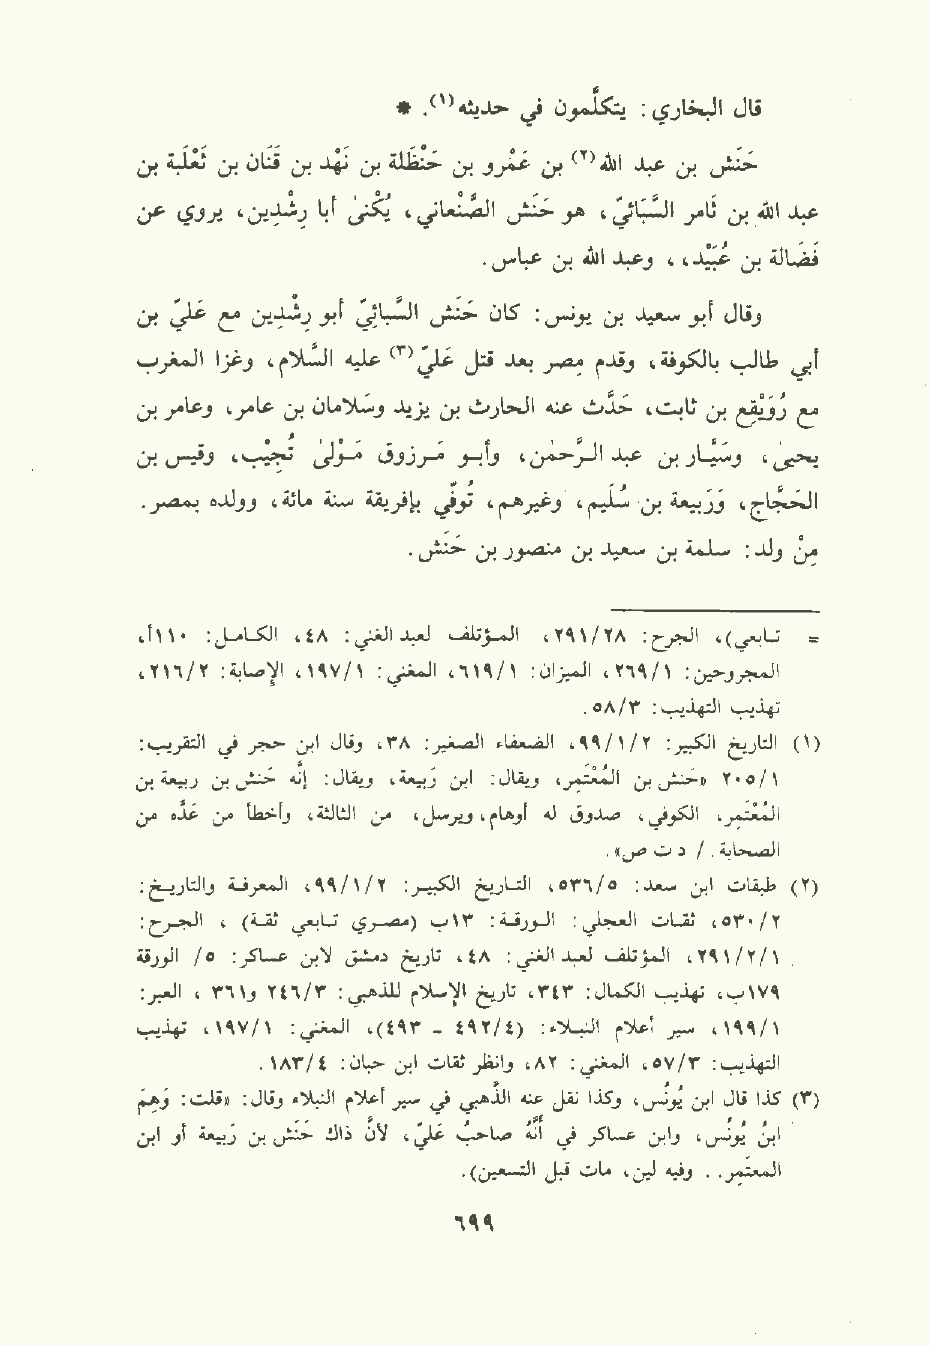 قال البخاري: يتكلَّمون في حديثه⁽¹⁾. *
حَنَش بن عبد الله⁽²⁾ بن عَمْرو بن حَنْظَلة بن نَهْد بن قَنَان بن ثَعْلَبة بن
عبد الله بن ثامر السَّبَائيّ، هو حَنَش الصَّنْعاني، يُكْنىٰ أبا رِشْدِين، يروي عن
فَضَالة بن عُبَيْد، ، وعبد الله بن عباس.
وقال أبو سعيد بن يونس: كان حَنَش السَّبائِيّ أبو رِشْدِين مع عَليّ بن
أبي طالب بالكوفة، وقدم مِصر بعد قتل عَليّ⁽³⁾ عليه السَّلام، وغزا المغرب
مع رُوَيْفِع بن ثابت، حَدَّث عنه الحارث بن يزيد وسَلامان بن عامر، وعامر بن
يحيىٰ، وسَيَّار بن عبد الـرَّحمٰن، وأبـو مَـرزوق مَـوْلىٰ تُجِيْب، وقيس بن
الحَجَّاج، وَرَبيعة بن سُلَيم، وغيرهم، تُوفِّي بإفريقة سنة مائة، وولده بمصر.
مِنْ ولد: سلمة بن سعيد بن منصور بن حَنَش.
= تـابعي)، الجرح: ٢٩١/٢٨، المـؤتلف لعبد الغني: ٤٨، الكـامـل: ١١٠أ،
المجروحين: ٢٦٩/١، الميزان: ٦١٩/١، المغني: ١٩٧/١، الإصابة: ٢١٦/٢،
تهذيب التهذيب: ٥٨/٣.
(١) التاريخ الكبير: ٩٩/١/٢، الضعفاء الصغير: ٣٨، وقال ابن حجر في التقريب:
٢٠٥/١ «حَنش بن المُعْتَمِر، ويقال: ابن رَبيعة، ويقال: إنَّه حَنش بن ربيعة بن
المُعْتَمِر، الكوفي، صدوق له أوهام، ويرسل، من الثالثة، وأخطأ من عَدَّه من
الصحابة. / د ت ص».
(٢) طبقات ابن سعد: ٥٣٦/٥، التـاريخ الكبيـر: ٩٩/١/٢، المعرفـة والتاريـخ:
٥٣٠/٢، ثقـات العجلي: الـورقـة: ١٣ب (مصـري تـابعي ثقـة) ، الجـرح:
٢٩١/٢/١، المؤتلف لعبد الغني: ٤٨، تاريخ دمشق لابن عسـاكر: ٥/ الورقة
١٧٩ب، تهذيب الكمال: ٣٤٣، تاريخ الإسلام للذهبي: ٢٤٦/٣ و٣٦١ ، العبر:
١٩٩/١، سير أعلام النبـلاء: (٤٩٢/٤ - ٤٩٣)، المغني: ١٩٧/١، تهذيب
التهذيب: ٥٧/٣، المغني: ٨٢، وانظر ثقات ابن حبان: ١٨٣/٤.
(٣) كذا قال ابن يُونُس، وكذا نقل عنه الذَّهبي في سير أعلام النبلاء وقال: «قلت: وَهِمَ
ابنُ يُونُس، وابن عساكر في أنَّهُ صاحبُ عَليّ، لأنَّ ذاك حَنَش بن رَبيعة أو ابن
المعتَمِر. . وفيه لين، مات قبل التسعين).
٦٩٩